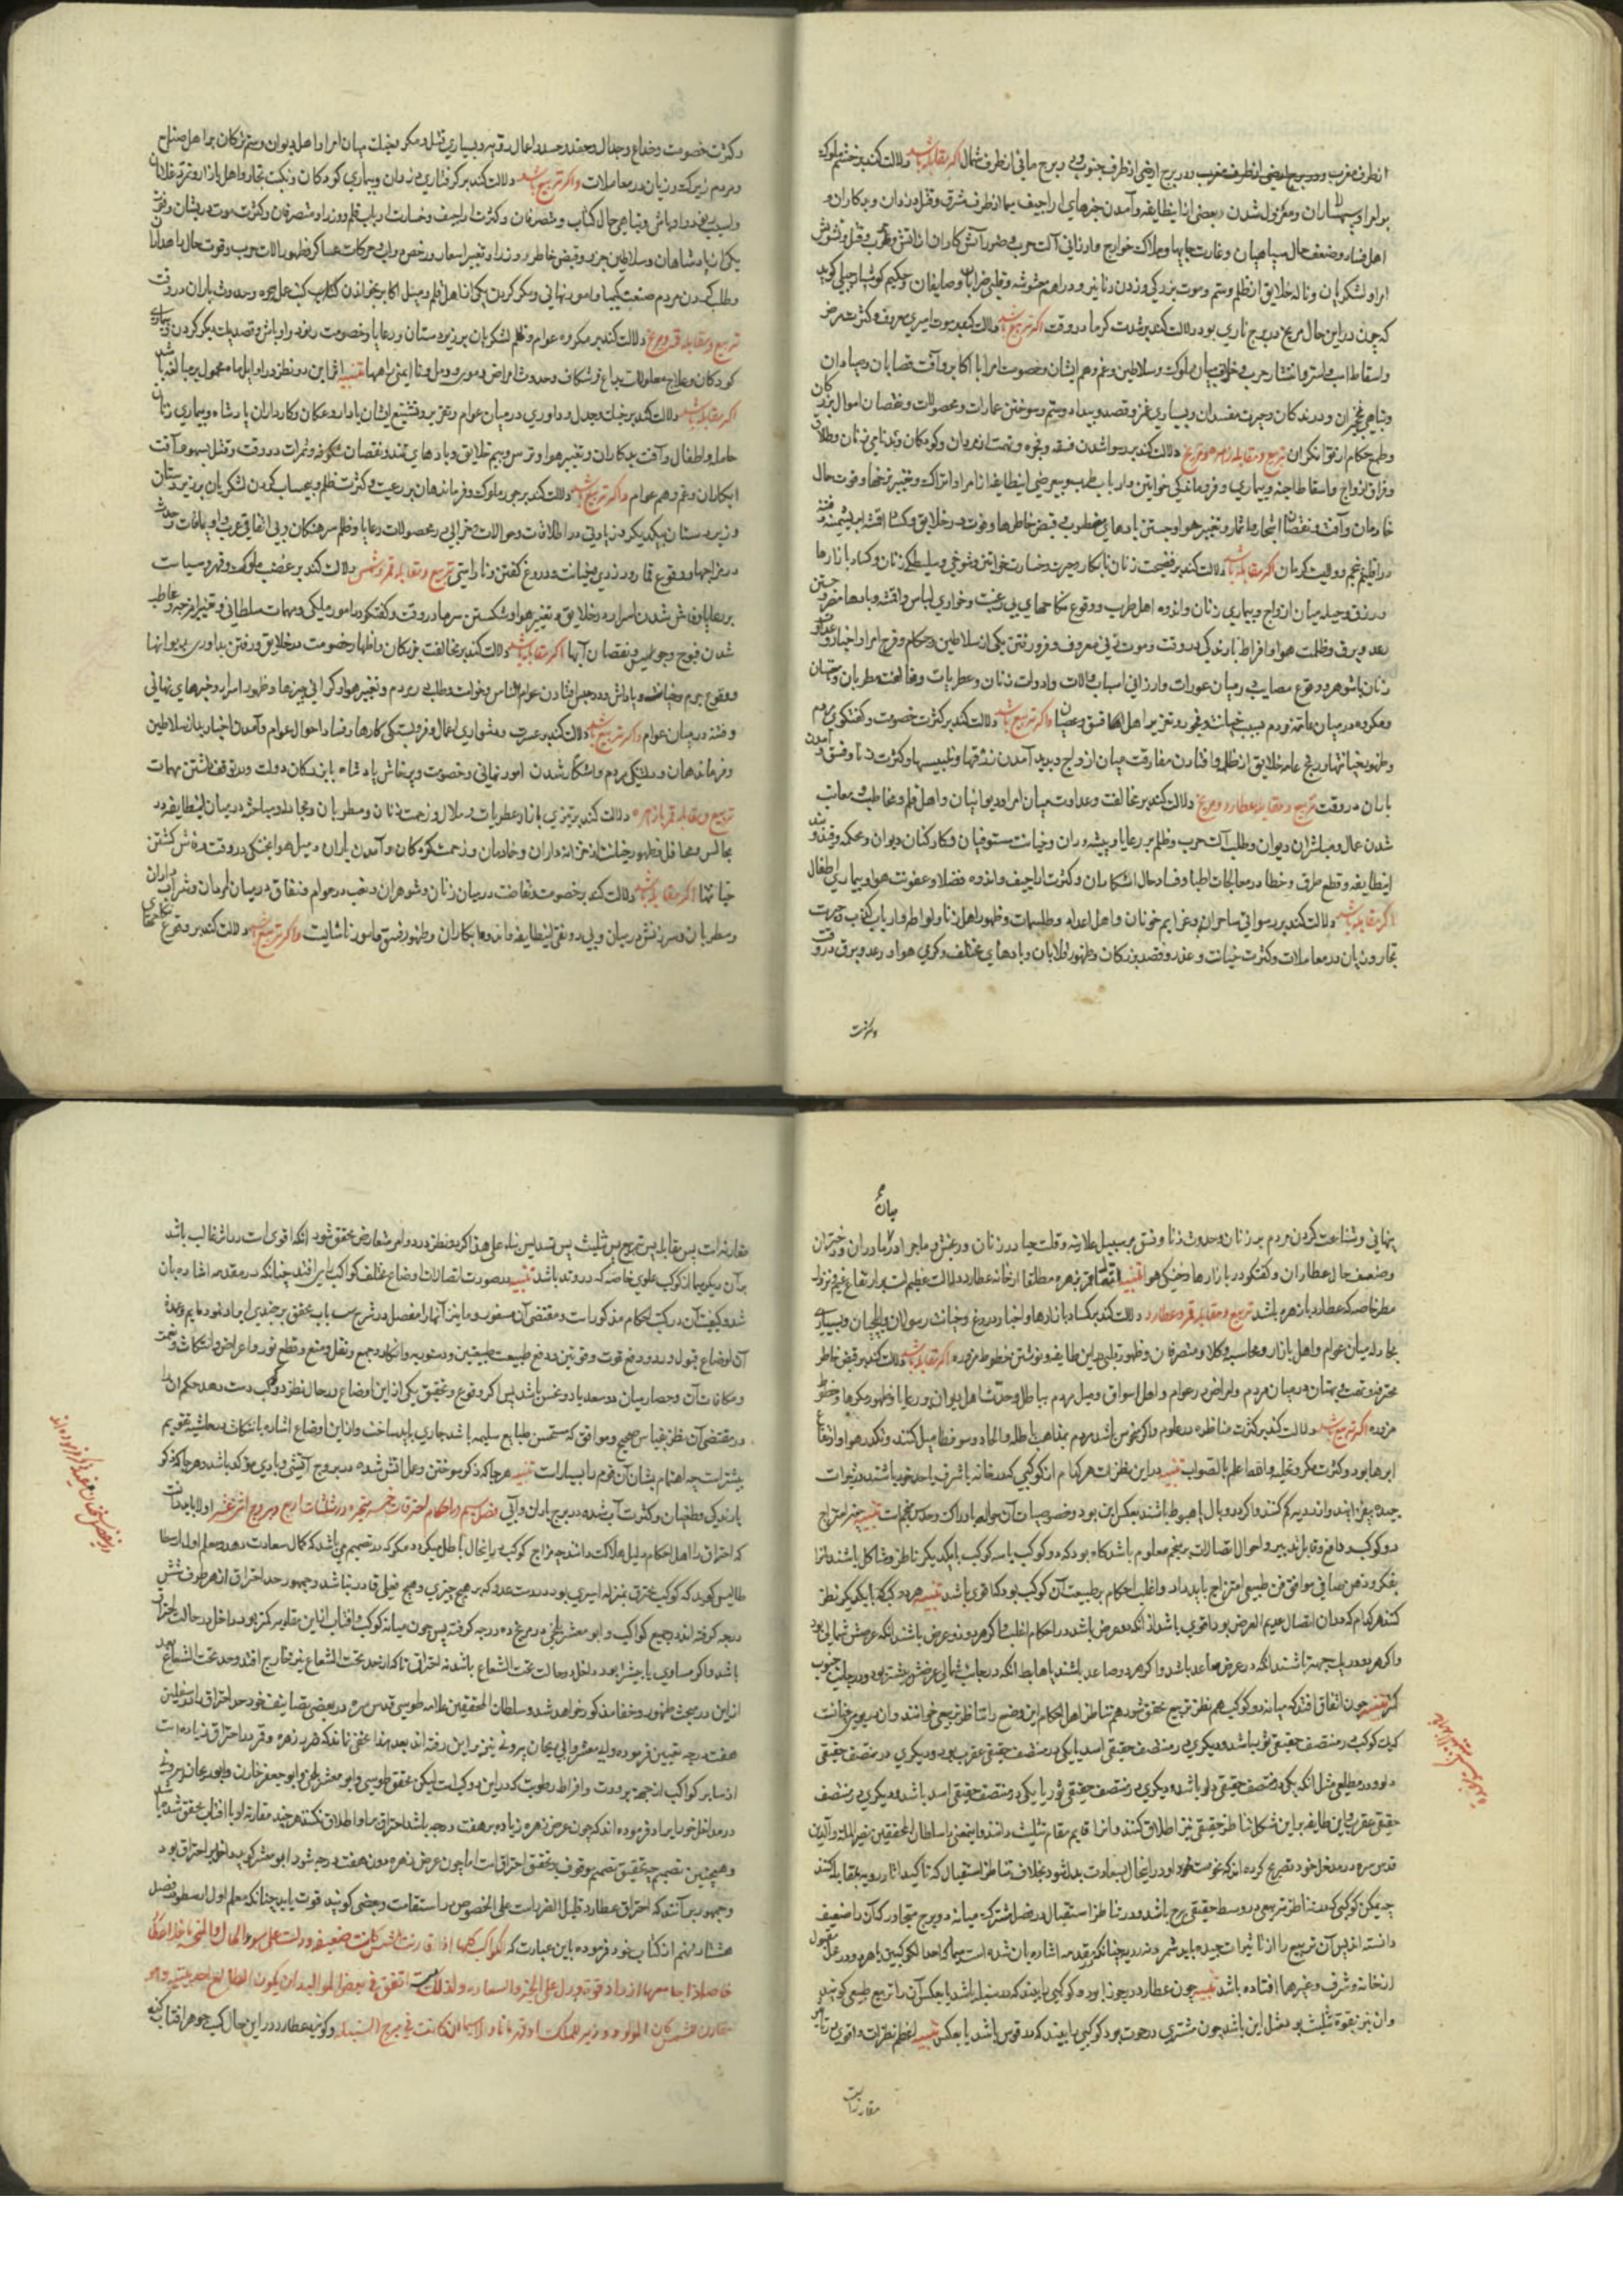 از طرف مغرب و در برج ارضی از طرف جنوب و در برج مائی از طرف شمال اکر مقابله باشد دلالت کند بر خشم ملوک
بر امرا و سپهسالاران و معزول شدن بعضی از این طایفه و آمدن خبرهای اراجیف سیما از طرف شرق و قتل دزدان و بدکاران و
اهل فساد و ضعف حال سپاهیان و غارت جایها و هلاک خوارج و ارزانی آلت حرب و ضرر آتش کاران از آتش و حرب و قتل و تشویش
امرا و لشکریان و ناله خلایق از ظلم و ستم و موت بزرکی و زدن دنانیر و دراهم مغشوشه و قلب و حکیم کوشیار جیلی کوید
که چون در این حال مریخ در برج ناری بود دلالت کند بر شدت کرما در وقت اکر تربیع باشد دلالت کند بر موت امیری معروف و کثرت مرض
و اسقاط اسب و استر و انتشار حرب و خلاف میان ملوک و سلاطین و غم و هم ایشان و خصومت امرا با اکابر و آفت قصابان و صیادان
و تباهی نخجیران و درندکان و حیرت مفسدان و بسیاری غز و قصد و بیداد و ستم و سوختن عمارات و محصولات و نقصان اموال بزرکان
و طمع حکام از توانکران تربیع و مقابله زهره و مریخ دلالت کند بر رسوا شدن فسقه و فجره و تهمت از مردان و کودکان و بدنامی زنان و طلاق
و فراق ازواج و اسقاط اجنه و بیماری و فروماندکی خواتین و ارباب طرب و بیعرضی این طایفه از امرا و اتراک و تغییر نرخها و فوت حال
خادمان و آفت و نقصان اشجار و اثمار و تغییر هوا و جستن بادهای مخطوب و قبض خاطرها و فوت در خلایق و کساد اقمشه ابریشمینه و فتنه
در اقلیم پنجم و ولایت کرمان اکر مقابله باشد دلالت کند بر فضیحت زنان نابکار و حیرت و خسارت خواتین و شوخی و سلیطکی زنان و کساد بازارها
در رزق و حیله میان ازواج و بیماری زنان و اندوه اهل طرب و وقوع نکاحهای بی رغبت و خواری لباس و اقمشه و بادها مضر و جستن
رعد و برق و ظلمت هوا و افراط بارندکی در وقت و موت زنی معروف و فرو رفتن یکی از سلاطین و حکام و فرح امرا و اخبار و عداوت
زنان با شوهر و وقوع مصایب در میان عورات و ارزانی اسباب و آلات و ادوات زنان و عطریات و مخالفت مطربان و مخنثان
و مکروه در میان عامه مردم بسبب خیانت و فجور و تعزیر اهل فسق و عصیان و اکر تربیع باشد دلالت کند بر کثرت خصومت و کفتکوی مردم
و ظهور خیانتها و رنج عامه خلایق از ظلم و افتادن مفارقت میان ازواج و پدید آمدن زرقها و تلبیسها و کثرت زنا و فسق و آمدن
باران در وقت تربیع و مقابله عطارد و مریخ دلالت کند بر مخالفت و عداوت میان امرا و دیوانیان و اهل قلم و مخاطب و معاتب
شدن عمال و مباشران دیوان و طلب آلت حرب و ظلم بر رعایا و پیشه وران و خیانت مستوفیان و کارکنان دیوان و محکمه و قید و بند
این طایفه و قطع طرق و خطا در معالجات اطبا و فساد حال انشکاران و کثرت اراجیف و اندوه فضلا و عفونت هوا و بیماری اطفال
اکر مقابله باشد دلالت کند بر رسوائی ساحران و عزایم خوانان و اهل اعداد و طلسمات و ظهور اهل زنا و لواطه و ارباب کذب و حیرت
تجار و زیان در معاملات و کثرت خیانت و غدر و قصد بزرکان و ظهور قلابان و بادهای مختلف و کرمی هوا و رعد و برق در وقت
و کثرت
و کثرت خصومت و خداع و جدال و حقد و حسد و اعمال و بسیاری قتل و مکر و خیانت میان امرا و اهل دیوان و ستم ترکان بر اهل صلح
و مردم زیرک و زیان در معاملات و اکر تربیع باشد دلالت کند بر کرفتاری دزدان و بیماری کودکان و نکبت تجار و اهل بازار و تفرقه غلامان
و آسیب رنود و اوباش و تباهی حال کتاب و متصرفان و کثرت اراجیف و خسارت ارباب قلم و وزرا و متصرفان و کثرت موت در ایشان و فوت
یکی از پادشاهان و سلاطین جزو و قبض خاطر وزرا و تغییر اسعار و رخص دواب و حرکات عساکر و ظهور آلات حرب و قوت حال
و طلب کردن مردم صنعت کیمیا و امور نهانی و مکر کردن یکی از اهل قلم و میل اکابر بخواندن کتاب و حدوث باران در وقت
تربیع و مقابله قمر و مریخ دلالت کند بر مکروه عوام و ظلم لشکریان بر زیردستان و رعایا و خصومت رنود و اوباش و قصد یکدیکر کردن و بیماری
کودکان و علاج معلولات بداغ و شکاف و حدوث امراض دموی و میل و نا ایمنی راهها تنبیه اثر این دو نظر در اوایل ماه محمول بر مبالغه باشد
اکر مقابله باشد دلالت کند بر خیانت و جدل و داوری در میان عوام و تعزیر و تشنیع ایشان با داروغکان و کارداران پادشاه و بیماری زنان
حامله و اطفال و آفت بدکاران و تغییر هوا و ترس و بیم خلایق و بادهای تند و نقصان شکوفه و ثمرات در وقت و قتل بسهو و آفت
ابکاران و غم و هم عوام و اکر تربیع باشد دلالت کند بر جور ملوک و فرماندهان بر رعیت و کثرت ظلم و بیحساب کردن لشکریان بر زیردستان
و زیردستان بر یکدیکر و زیادتی در اطلاقات و حوالات و خرابی در محصولات رعایا و ظلم سرهنکان و بی اتفاقی عرب و اویماقات و حدث
در مزاجها و وقوع قمار و دزدی و خیانت و دروغ کفتن و ناراستی تربیع و مقابله قمر و شمس دلالت کند بر غضب ملوک و قهر و سیاست
بر رعایا و فاش شدن اسرار در خلایق و تغییر هوا و شکستن سرما در وقت و کفتکو در امور ملکی و مهمات سلطانی و تغییر امزجه و مخاطب
شدن فیوج و جواسیس و نقصان آبها اکر مقابله باشد دلالت کند بر مخالفت بزرکان و اظهار خصومت در خلایق و رفتن بداوری بر دیوانها
و فتنه در میان عوام و اکر تربیع باشد دلالت کند بر عسرت و دشواری اعمال و فروبستکی کارها و فساد احوال عوام و آمدن اخبار میان سلاطین
و فرماندهان و دلتنکی مردم و آشکار شدن امور نهانی و خصومت و پرخاش پادشاه با بزرکان دولت و در توقف داشتن مهمات
تربیع و مقابله قمر با زهره دلالت کند بر تیزی بازار عطریات و ملال و زحمت زنان و مطربان و مجادله و مباحثه در میان این طایفه در
مجالس و محافل و ظهور خیانت از خزانه داران و خادمان و زحمت کودکان و آمدن باران و میل هوا بخنکی در وقت و فاش کشتن
خیانتها اکر مقابله باشد دلالت کند بر خصومت و تفاحت در میان زنان و شوهران و تعب در عوام و نفاق در میان لوندان و شراب داران
و مطربان و سرزنش در میان و بی رونقی این طایفه و اندوه ابکاران و ظهور فسق و امور ناشایست و اکر تربیع باشد دلالت کند بر وقوع نکاحهای
بیان
پنهانی و شناعت کردن مردم بر زنان و حدوث زنا و فسق بر سبیل علانیه و قلت حیا در زنان و رنجش و ماجرا در مادران و دختران
و ضعف حال عطاران و کفتکو در بازارها و خنکی هوا تنبیه اتصال قمر بزهره مطلقا از خانه عطارد دلالت عظیم است بر ارتفاع غیم و نزول
مطر خاصه که عطارد با زهره باشد تربیع و مقابله قمر و عطارد دلالت کند بر کساد بازارها و اخبار دروغ و خیانت رسولان و ایلچیان و بسیاری
مجادله میان عوام و اهل بازار و محاسب و وکلا و متصرفان و ظهور تلبیس در این طایفه و نوشتن خطوط مزوره اکر مقابله باشد دلالت کند بر قبض خاطر
محترفه و تهمت و بهتان در میان مردم و امراض در عوام و اهل اسواق و میل مردم بباطل و حدث اهل دیوان و رعایا و ظهور مکرها و خطوط
مزوره اکر تربیع باشد دلالت کند بر کثرت مناظره در علوم و اکر منحوس باشد مردم بمذاهب باطله و الحاد و سوفسطا میل کنند و تکدر هوا و ارتفاع
ابرها بود و کثرت مکر و تخیله والله اعلم بالصواب تنبیه در این نظرات هر کدام از کوکبی که در خانه یا شرف یا حد خود باشند در ثمرات
جیده بیفزایند و از ردیه کم کنند و اکر در وبال یا هبوط باشند بعکس این بود و خصوصیات آن حواله بادراک و حدس منجم است تنبیه چون امتزاج
دو کوکب و دافع و قابل تدبیر و احوال اتصالات بر منجم معلوم باشد کاه بود که دو کوکب یا سه کوکب با یکدیکر ناظر و مشاکل باشند آنرا
بفکر و ذهن صافی موافق فن طبیعی امتزاج باید داد و اغلب احکام بر طبیعت آن کوکب بود که اقوی باشد تنبیه هر دو کوکب که با یکدیکر نظر
کنند هر کدام که در آن اتصال عدیم العرض بود اقوی باشد از آنکه ذو عرض باشد در احکام اغلب و اکر هر دو ذو عرض باشند آنکه عرضش شمالی بود
و اکر هر دو در یک جهت باشند آنکه در عرض صاعد باشد و اکر هر دو صاعد باشند یا هابط آنکه در جانب شمالی عرضش بیشتر بود و در جانب جنوب
کمتر تنبیه چون اتفاق افتد که میانه دو کوکب هم نظر تربیع محقق شود هم تناظر اهل احکام این وضع را تناظر تربیعی خوانند و آن در بروج ثابت
که یک کوکب در منتصف حقیقی ثور باشد و دیکری در منتصف حقیقی اسد یا یکی در منتصف حقیقی عقرب بود و دیکری در منتصف حقیقی
دلو و در مطلعی مثل آنکه یکی در منتصف حقیقی دلو باشد و دیکری در منتصف حقیقی ثور یا یکی در منتصف حقیقی اسد باشد و دیکری در منتصف
حقیقی عقرب و این طایفه بر این شکل تناظر حقیقی نیز اطلاق کنند و آنرا قایم مقام تثلیث دانند و این معنی را سلطان المحققین نصیر الملة والدین
قدس سره در مدخل خود تصریح کرده اند که نحوست در این حال بسعادت بدل شود بخلاف تناظر استقبال که تاکید آثار ردیه مقابله کند
چه ممکن کوکبی که در تناظر تربیعی در وسط حقیقی برج باشد و در تناظر استقبال در فصل مشترک میانه دو برج متجاور که آن را ضعیف
دانسته اند پس آن تربیع را از تاثیرات جیده باید شمرد نه ردیه چنانکه در مقدمه اشاره بآن شده است سیما که احد الکوکبین یا هر دو در محل مقبول
از خانه و شرف و غیرها افتاده باشد تنبیه چون عطارد در جوزا بود و کوکبی را بیند که در سنبله باشد یا بعکس آن را تربیع طبیعی کویند
و آن نیز بقوت تثلیث بود مثل این باشد چون مشتری در حوت بود کوکبی را بیند که در قوس باشد یا بعکس تنبیه اعظم نظرات و اقوی در تاثیر
مقارنه است
مقارنه است پس مقابله پس تربیع پس تثلیث پس تسدیس بناء علی هذا اکر دو نظر در دو امر متعارض محقق شود آنکه اقوی است در تاثیر غالب باشد
بر آن دیکر سیما از کوکب علوی خاصه که در وتد باشد تنبیه در صورت اتصالات اوضاع مختلف کواکب را می افتد چنانکه در مقدمه اشاره بآن
شد و کیفیت آن در کتب احکام مذکور است و مقتضی آن مسفور و ما نیز آنها را مفصل در شرح سی باب محقق برجندی ایراد نموده ایم و عمده
آن اوضاع قبول و رد و دفع قوت و قوتین و دفع طبیعت و طبیعتین و دستوریه و انکار و جمع و نقل و منع و قطع نور و اعراض و انتکاث و نعمت
و مکافات آن و حصار میان دو سعد یا دو نحس باشد پس اکر وقوع و تحقیق یکی از این اوضاع در حال نظر دو کوکب دست دهد حکم آن را
در مقتضی آن نظر بقیاس صحیح و موافق که مستحسن طبایع سلیمه باشد جاری باید ساخت و از این اوضاع اشاره بانتکاث در حاشیه تقویم
بیشتر است چه اهتمام بشان آن قوم را بسیار است تنبیه هر جا که ذکر سوختن و عمل آتش شده در بروج آتشی و بادی مؤکد باشد و هر جا که ذکر
بارندکی و طغیان و کثرت آب شده در برج باران و آبی فصل سیم در احکام احتراقات خمسه متحیره در مثلثات اربع و بروج اثنی عشر اولا باید دانست
که احتراق را اهل احکام دلیل هلاکت دانند چه مزاج کوکب در این حال باطل میکردد مکر که در تصمیم می باشد که کمال سعادت دهد و معلم اول ارسطا
طالیس کوید که کوکب محترق بمنزله اسیری بود در دست عدو که بر هیچ چیزی و هیچ فعلی قادر نباشد و جمهور حد احتراق از هر طرف شش
درجه کرفته اند در جمیع کواکب و ابو معشر بلخی در مریخ ده درجه کرفته پس چون میانه کوکب و آفتاب از این مقادیر کمتر بود داخل در حالت احتراق
باشد و اکر مساوی یا بیشتر بود داخل در حالت تحت الشعاع باشد نه احتراق تا که از حد تحت الشعاع نیز خارج افتد و حد تحت الشعاع بعد
از این در مبحث ظهور و خفا مذکور خواهد شد و سلطان المحققین علامه طوسی قدس سره در بعضی تصانیف خود حد احتراق را در سفلیین
هفت درجه تعیین فرموده و ابو معشر و ابی ریحان بیرونی نیز بر این رفته اند بعد هذا مخفی نماند که ضرر زهره و قمر در احتراق زیاده است
از سایر کواکب از جهت برودت و افراط رطوبت که در این دو کوکب است لیکن محقق طوسی و ابو معشر بلخی و ابو جعفر خازن و ابو ریحان بیرونی
در مداخل خود ایراد فرموده اند که چون عرض زهره زیاده بر هفت درجه باشد احتراق بر او اطلاق نکنند هر چند مقارنه او با آفتاب محقق شده باشد
و همچنین تصمیم چه تحقیق تصمیم موقوف بر تحقیق احتراق است اما چون عرض زهره دون هفت درجه شود ابو معشر کوید داخل در احتراق بود
و جمهور بر آنند که احتراق عطارد قلیل الضرر است علی الخصوص در استقامت و بعضی کویند قوت یابد چنانکه معلم اول ارسطو در فصل
هشتاد و نهم از کتاب خود فرموده باین عبارت که الکواکب کلها اذا قارنت الشمس کانت ضعیفة و دلت علی سوء الحال والمنحسة ما خلا عطارد
خاصة اذا جامعها ازداد قوة و یدل علی الخیر والسعادة ولذلک متی اتفق فی بعض الموالید ان یکون الطالع احد بیتیه وهو
مقارن للشمس کان المولود وزیر للملک او قهرمانا ولا سیما ان کانت فی برج السنبلة و کویند عطارد در این حال کسب جوهر آفتاب کند